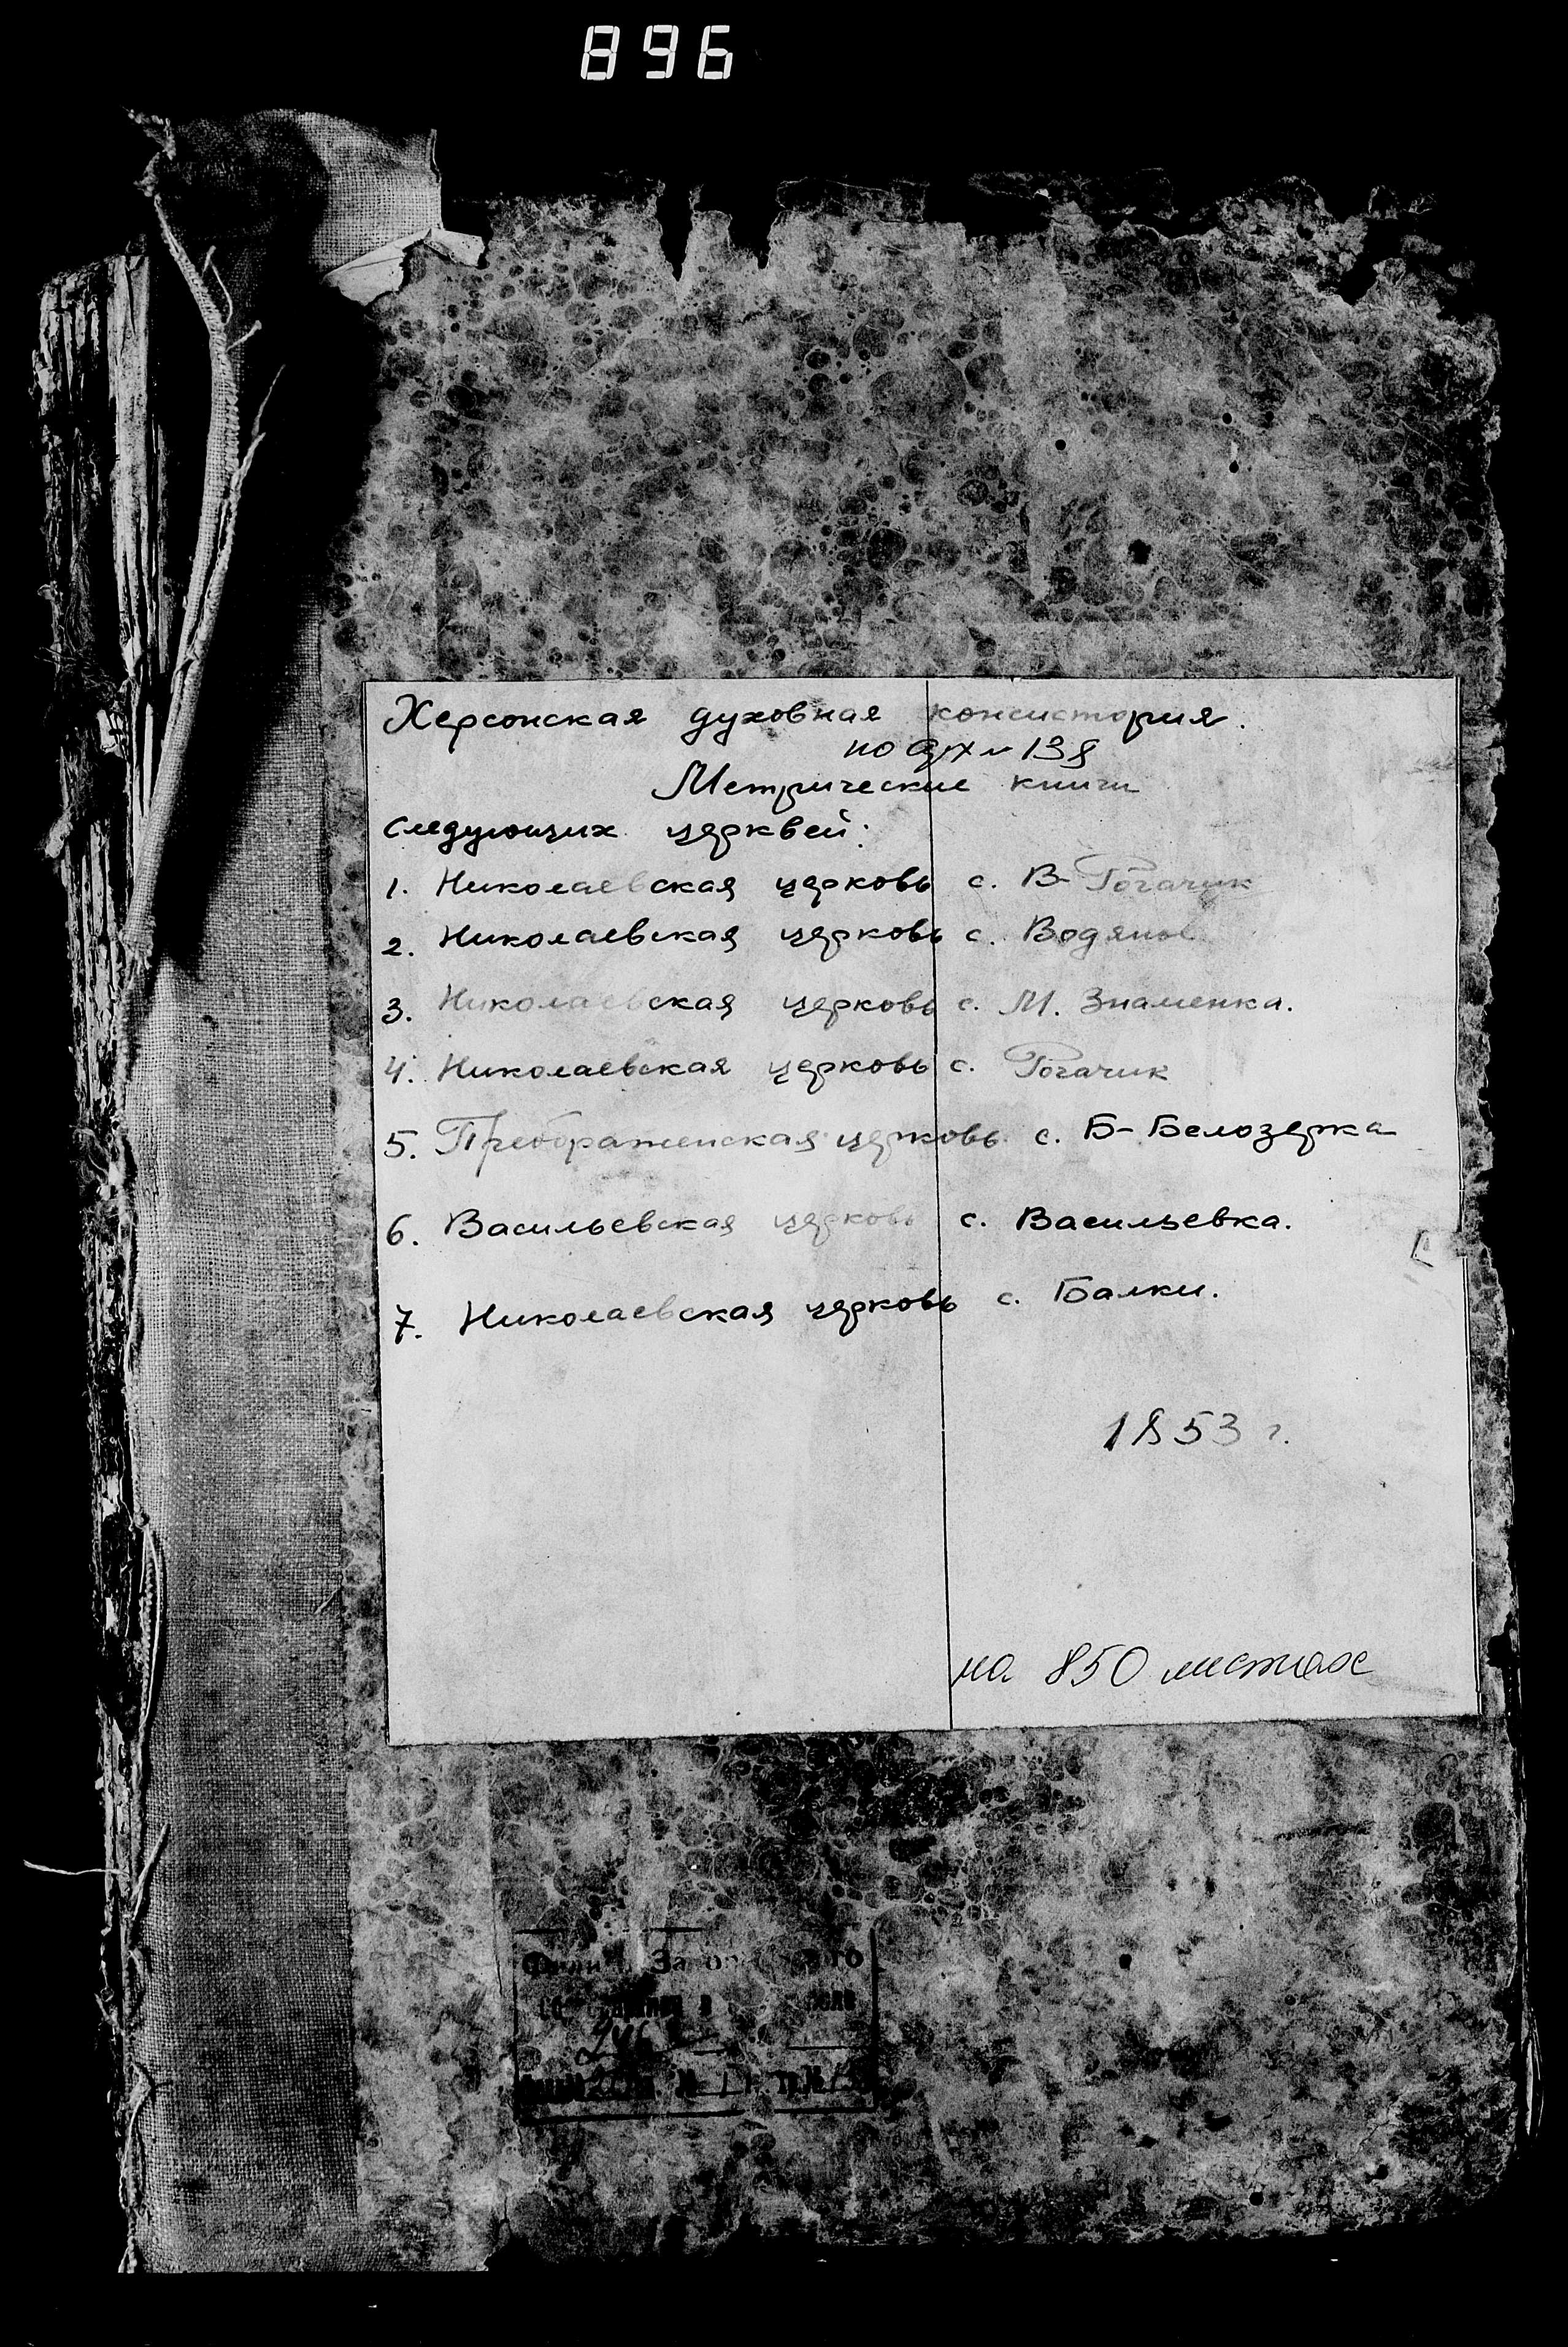 896
Херсонская духовная консистория.
по арх № 138
Метрические книги
следующих церквей:
1. Николаевская церковь с. В-Рогачик
2. Николаевская церковь с. Водяное
3. Николаевская церковь с. М. Знаменка.
4. Николаевская церковь с. Рогачик
5. Преображенская церковь с. Б-Белозерка
6. Васильевская церковь с. Васильевка.
7. Николаевская церковь с. Балки.
1853 г.
на 850 листах